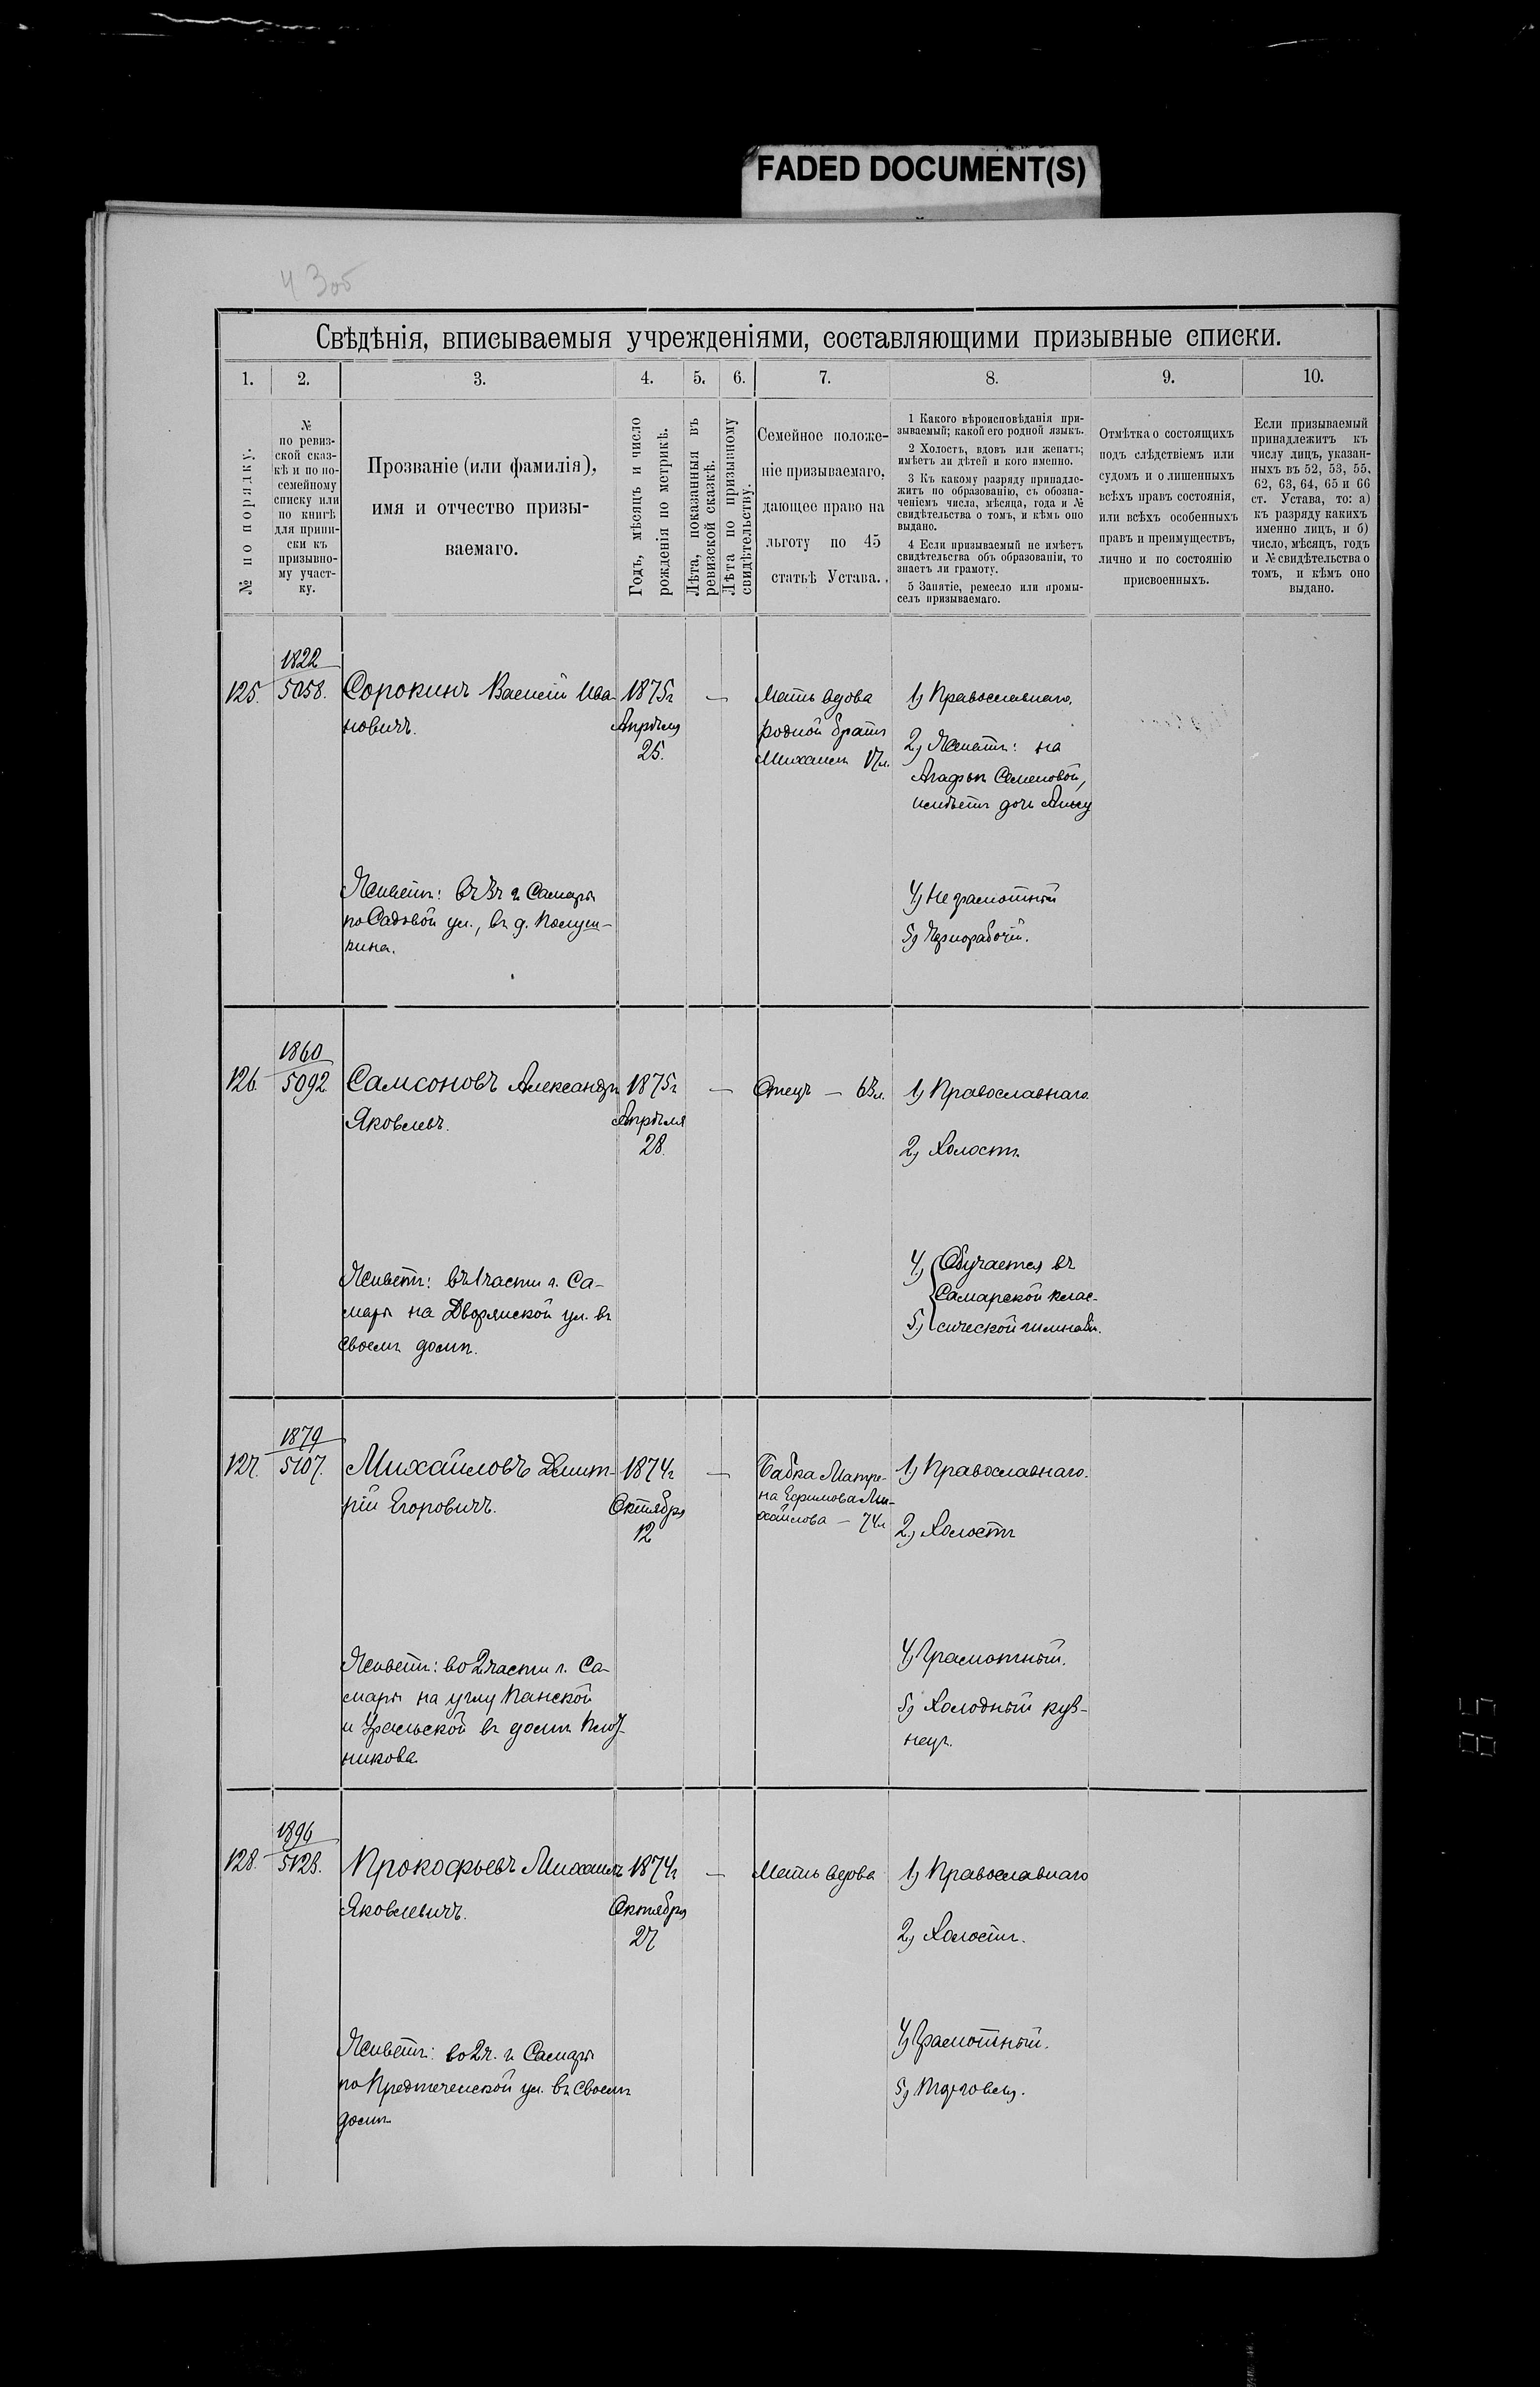 FADED DOCUMENT(S)
43об
Свѣдѣнія, вписываемыя учрежденіями, составляющими призывные списки.
1. 2. 3. 4. 5. 6. 7. 8. 9. 10.
№ по порядку.
№
по ревиз-
ской сказ-
кѣ и по по-
семейному
списку или
по книгѣ
для припи-
ски къ
призывно-
му участ-
ку.
Прозваніе (или фамилія),
имя и отчество призы-
ваемаго.
Годъ, мѣсяцъ и число
рожденія по метрикѣ.
Лѣта, показанныя въ
ревизской сказкѣ.
Лѣта по призывному
свидѣтельству.
Семейное положе-
ніе призываемаго,
дающее право на
льготу по 45
статьѣ Устава.
1 Какого вѣроисповѣданія при-
зываемый; какой его родной языкъ.
2 Холостъ, вдовъ или женатъ;
имѣетъ ли дѣтей и кого именно.
3 Къ какому разряду принадле-
житъ по образованію, съ обозна-
ченіемъ числа, мѣсяца, года и №
свидѣтельства о томъ, и кѣмъ оно
выдано.
4 Если призываемый не имѣетъ
свидѣтельства объ образованіи, то
знаетъ ли грамоту.
5 Занятіе, ремесло или промы-
селъ призываемаго.
Отмѣтка о состоящихъ
подъ слѣдствіемъ или
судомъ и о лишенныхъ
всѣхъ правъ состоянія,
или всѣхъ особенныхъ
правъ и преимуществъ,
лично и по состоянію
присвоенныхъ.
Если призываемый
принадлежитъ къ
числу лицъ, указан-
ныхъ въ 52, 53, 55,
62, 63, 64, 65 и 66
ст. Устава, то: а)
къ разряду какихъ
именно лицъ, и б)
число, мѣсяцъ, годъ
и № свидѣтельства о
томъ, и кѣмъ оно
выдано.
125.
1822
5058.
Сорокинъ Василій Ива-
новичъ.
1875г
Апрѣля
25.
—
Мать вдова
родной братъ
Михаилъ 17л.
1) Православнаго.
2) Женатъ: на
Агафьѣ Семеновой,
имѣетъ дочь Анну
Живетъ: въ 3ч г. Самары
по Садовой ул., въ д.
4) Неграмотный
5) Чернорабочій.
126
1860
5092
Самсоновъ Александръ
Яковлевъ.
1875г
Апрѣля
28.
—
Отецъ — 63л.
1) Православнаго.
2) Холостъ.
Живетъ: въ 1 части г. Са-
мары на Дворянской ул. въ
своемъ домѣ.
4) Обучается въ
Самарской клас-
5) сической гимназіи.
127.
1879
5107.
Михайловъ Дмит-
рій Егоровичъ.
1874г
Октября
12
—
Бабка Матре-
на Ефимова Ми-
хайлова — 74л
1) Православнаго.
2) Холостъ
Живетъ: во 2 части г. Са-
мары на углу Панской
и Уральской въ домѣ
4) Грамотный.
5) Холодный куз-
нецъ.
128.
1896
5128.
Прокофьевъ Михаилъ
Яковлевичъ.
1874г
Октября
27
—
Мать вдова
1) Православнаго
2) Холостъ.
Живетъ: во 2ч. г. Самары
по Предтеченской ул. въ своемъ
домѣ
4) Грамотный.
5) Торговецъ.
85